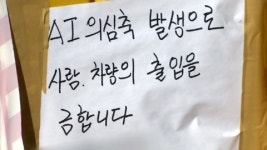 AI 의심축 발생으로
사람. 차량의 출입을
금합니다